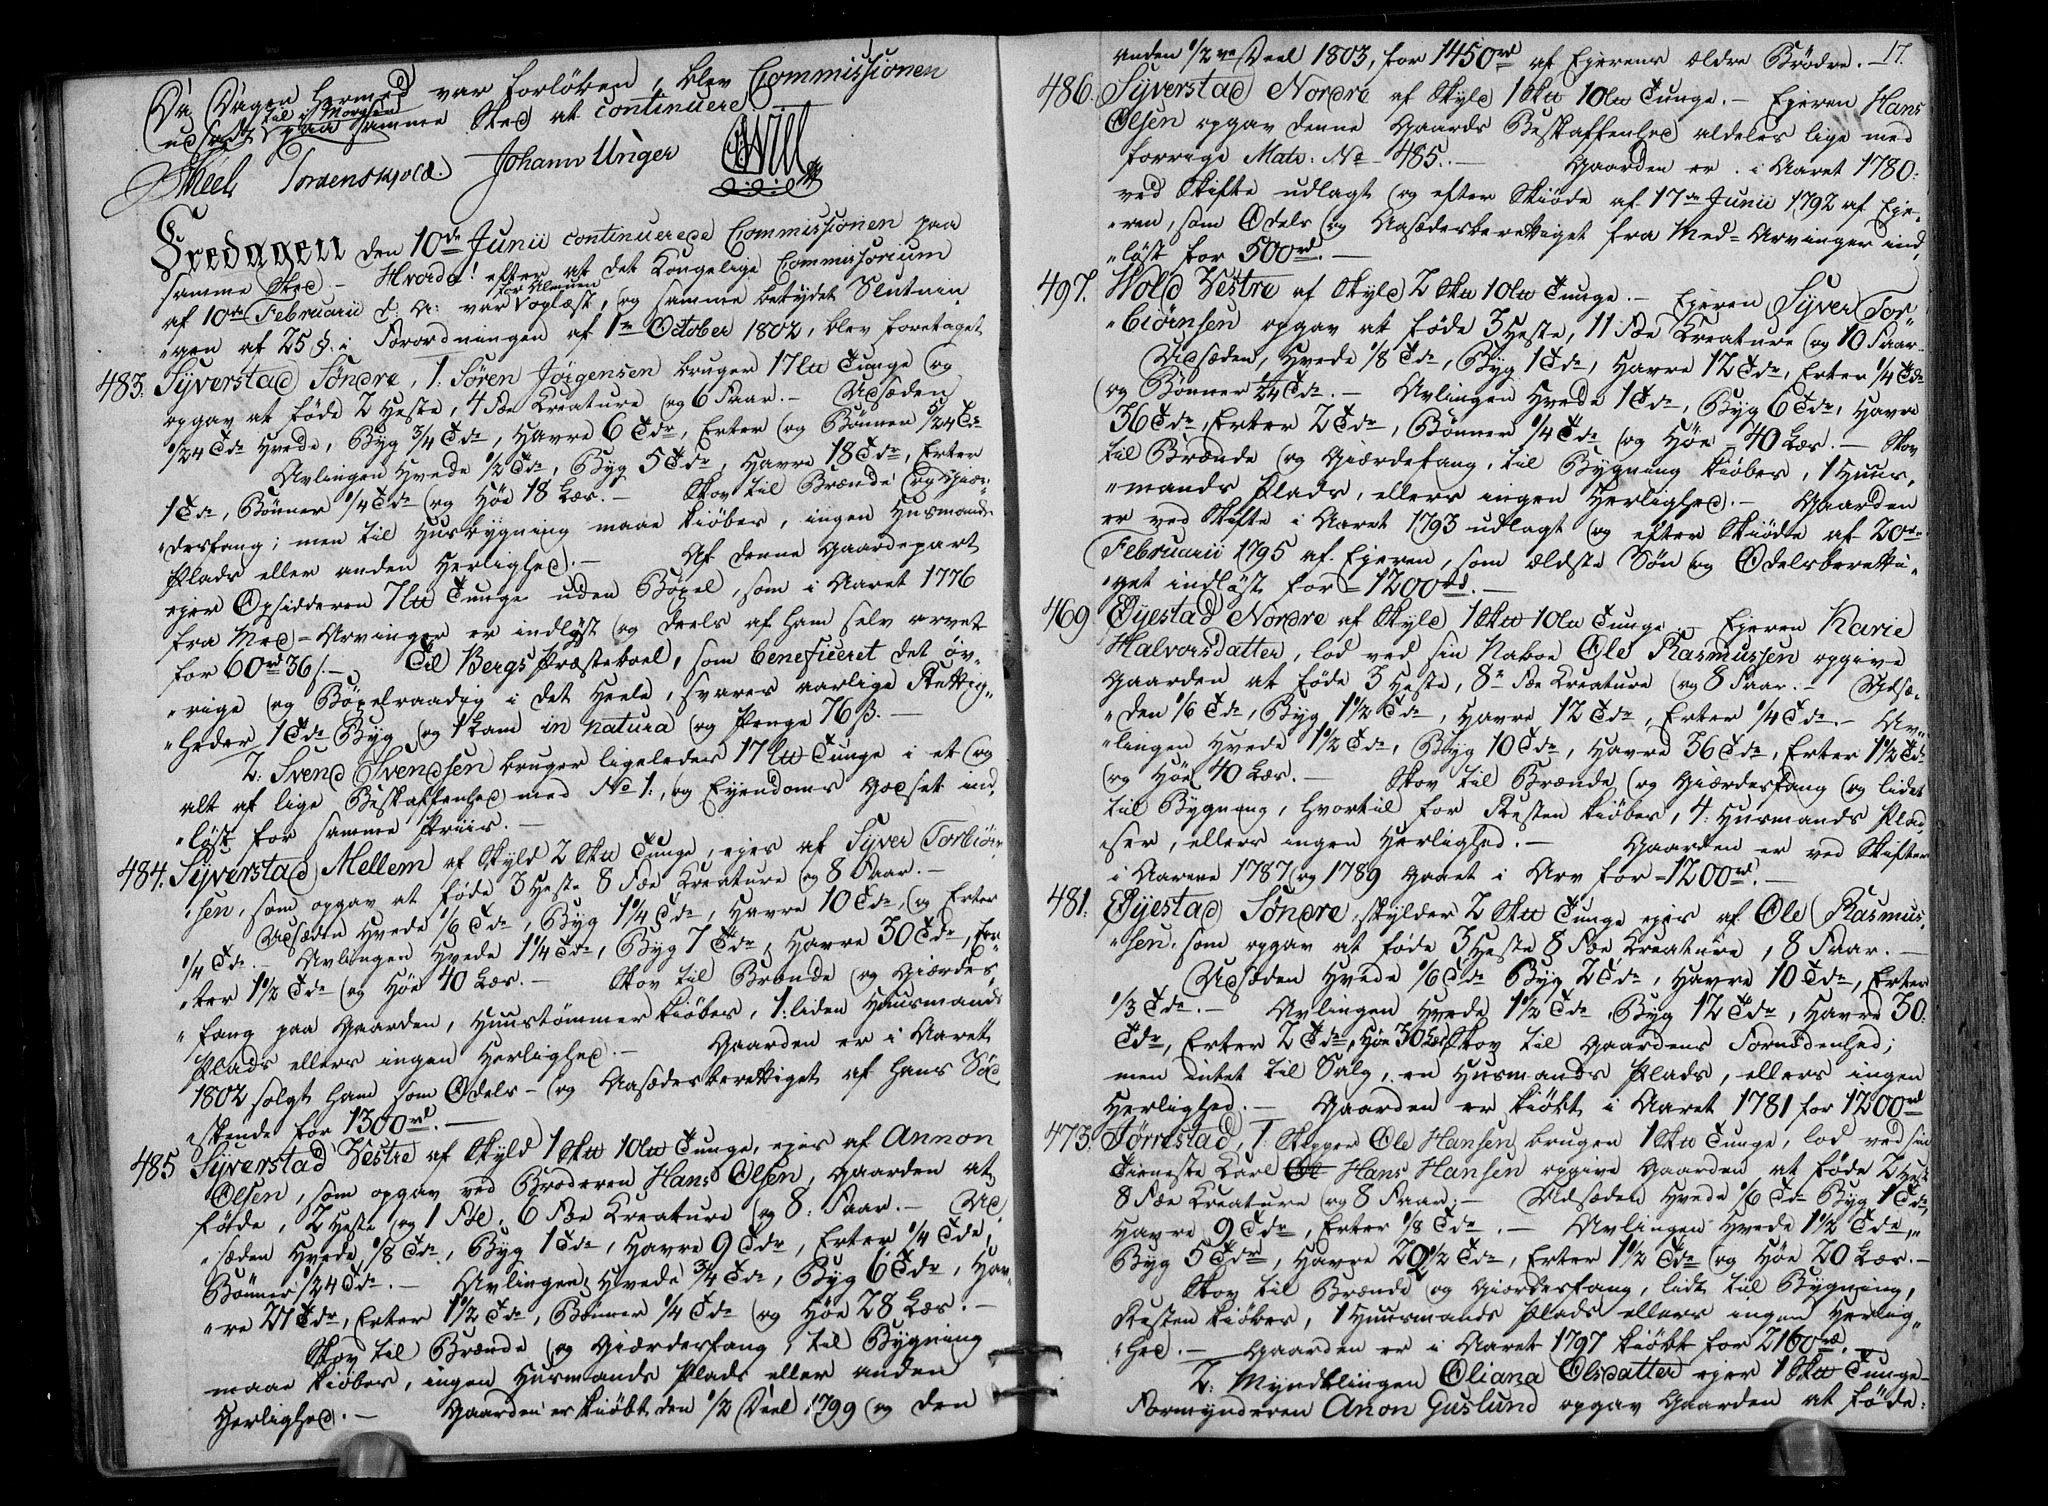 Da Dagen hermed var forløben, blev Commissionen
udsadt til i Morgen paa samme Sted at continuere
Skeel Tordenskjold. Johann Unger O Will
Fredagen den 10de Junii continuerede Commissionen paa
samme Sted. – Hvorda! efter at det Kongelige Commissorium
af 10de Februarii d: A: var for Almuen oplæst, og samme betydet Slutnin„
„gen af 25 §. i Forordningen af 1te October 1802, blev foretaget
483. Syverstad Søndre, 1: Søren Jørgensen bruger 17 Lu Tunge og
opgav at føde 2 Heste, 4 Fæe Kreature og 6 Faar. – Udsæden
1/24 Tde Hvede, Byg 3/4 Tde, Havre 6 Tdr, Erter og Bønner 5/24 Tde
Avlingen Hvede 1/2 Tde, Byg 5 Tdr, Havre 18 Tdr, Erter
1 Tde, Bønner 1/4 Tde og Høe 18 Læs. – Skov til Brænde og Giær„
„desfang; men til Husbygning maae kiøbes, ingen Husmands
Plads eller anden Herlighed. – Af denne Gaardepart
ejer Opsidderen 7 Lu Tunge uden Bøxel, som i Aaret 1776
fra Med-Arvinger er indløst og deels af ham selv arvet
for 60 rd 36 s. – Til Bergs Præsteboel, som beneficeret det øv„
„rige og Bøxelraadig i det Heele, svares aarlige Rettig„
„heder 1 Tde Byg og 1 Lam in natura og Penge 76 ß. –
2: Svend Svendsen bruger ligeledes 17 Lu Tunge i et og
alt af lige Beskaffenhed med No 1:, og Eyendoms Godset ind„
„løst for samme Priis. –
484. Syverstad Mellem af Skyld 2 Sku Tunge, ejes af Syver Torbiørn
„sen, som opgav at føde 3 Heste 8 Fæe Kreature og 8 Faar. –
Udsæden Hvede 1/6 Tde, Byg 1 1/4 Tde, Havre 10 Tdr, og Erter
1/4 Tde. – Avlingen Hvede 1 1/4 Tde, Byg 7 Tdr, Havre 30 Tdr, Er„
„ter 1 1/2 Tde og Høe 40 Læs. – Skov til Brænde og Giærdes„
„fang paa Gaarden, Huustømmer kiøbes, 1: liden Huusmands
Plads ellers ingen Herlighed. – Gaarden er i Aaret
1802 solgt ham som Odels- og Aasædesberettiget af hans Sød„
„skende for 1300 rd. –
485 Syverstad Vestre af Skyld 1 Sku 10 Lu Tunge, ejes af Annon
Olsen, som opgav ved Broderen Hans Olsen, Gaarden at
føde, 2 Heste og 1 Føl, 6 Fæe Kreature og 8: Faar. – Ud„
„sæden Hvede 1/8 Tde, Byg 1 Tde, Havre 9 Tdr, Erter 1/4 Tde,
Bønner 1/24 Tde. – Avlingen, Hvede 3/4 Tde, Byg 6 Tdr, Hav„
„re 27 Tdr, Erter 1 1/2 Tde, Bønner 1/4 Tde og Høe 28 Læs. –
Skov til Brænde og Giærdesfang, til Bygning
maae kiøbes, ingen Husmands Plads eller anden
Herlighed. – Gaarden er kiøbt den 1/2 Deel 1799 og den
17.
anden 1/2 Deel 1803, for 1450 rd af Ejerens ældre Brødre. –
486. Syverstad Nordre af Skyld 1 Sku 10 Lu Tunge. – Ejeren Hans
Olsen opgav denne Gaards Beskaffenhed aldeles lige med
forrige Matr: No 485. – Gaarden er i Aaret 1780:
ved Skifte udlagt og efter Skiøde af 17de Junii 1792 af Eje„
„ren, som Odels og Aasædesberettiget fra Med-Arvinger ind„
„løst for 500 rd. –
497. Wold Vestre af Skyld 2 Sku 10 Lu Tunge. – Ejeren Syver Tor„
„biørnsen opgav at føde 3 Heste, 11 Fæe Kreature og 10 Faar.
Udsæden, Hvede 1/8 Tde, Byg 1 Tde, Havre 12 Tdr, Erter 1/4 Tde
og Bønner 1/24 Tde. – Avlingen Hvede 1 Tde, Byg 6 Tdr, Havre
36 Tdr, Erter 2 Tdr, Bønner 1/4 Tde og Høe 40 Læs. – Skov
til Brænde og Giærdefang, til Bygning kiøbes, 1 Huus„
„mands Plads, ellers ingen Herlighed. – Gaarden
er ved Skifte i Aaret 1793 udlagt og efter Skiøde af 20de
Februarii 1795 af Ejeren, som ældste Søn og Odelsberetti„
„get indløst for 1200 rd. –
469 Øyestad Nordre af Skyld 1 Sku 10 Lu Tunge. – Ejeren Karie
Halvorsdatter, lod ved sin Naboe Ole Rasmussen opgive
Gaarden at føde 3 Heste, 8 Fæe Kreature og 8 Faar. – Udsæ„
„den 1/6 Tde, Byg 1 1/2 Tde, Havre 12 Tdr, Erter 1/4 Tde. – Av„
„lingen Hvede 1 1/2 Tde, Byg 10 Tdr, Havre 36 Tdr, Erter 1 1/2 Tde
og Høe 40 Læs. – Skov til Brænde og Giærdesfang og lidet
til Bygning, hvortil for Resten kiøbes, 4: Husmands Plad„
„ser, ellers ingen Herlighed. – Gaarden er ved Skifter
i Aarene 1787 og 1789 gaaet i Arv for 1200 rd. –
481: Øyestad Søndre, skylder 2 Sku Tunge ejes af Ole Rasmus„
„sen, som opgav at føde 3 Heste 8 Fæe Kreature, 8 Faar. –
Udsæden Hvede 1/6 Tde Byg 2 Tdr, Havre 10 Tdr, Erter
1/3 Tde. – Avlingen Hvede 1 1/2 Tde, Byg 12 Tdr, Havre 30
Tdr, Erter 2 Tdr, Høe 30 Læs, Skov til Gaardens Fornødenhed;
men intet til Salg, en Husmands Plads, ellers ingen
Herlighed. – Gaarden er kiøbt i Aaret 1781 for 1200 rd
473. Tørrestad, 1: Skipper Ole Hansen, bruger 1 Sku Tunge, lod ved sin
Tieneste Karl Ol Hans Hansen opgive Gaarden at føde 2 Heste
8 Fæe Kreature og 8 Faar: – Udsæden Hvede 1/6 Tde Byg 1 Tde,
Havre 9 Tdr, Erter 1/8 Tde. – Avlingen Hvede 1 1/2 Tde,
Byg 5 Tdr, Havre 22 1/2 Tde, Erter 1 1/2 Tde og Høe 20 Læs. –
Skov til Brænde og Giørdesfang, lidt til Bygning,
Resten kiøbes, 1 Huusmands Plads ellers ingen Herlig„
„hed. – Gaarden er i Aaret 1797 kiøbt for 2160 rd. –
2: Myndtlingen Oliana Olsdatter ejer 1 Sku Tunge
Formynderen Anon Guslund opgav Gaarden at føde: